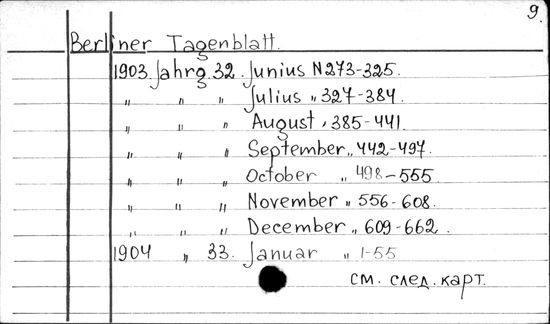 9.
Berliner Tagenblatt.
1903. Jahrg. 32. Junius N 273-325.
" " " Julius " 327-384.
" " " August " 385-441.
" " " September " 442-497.
" " " October " 498-555
" " " November " 556-608.
" " " December " 609-662.
1904 " 33. Januar " 1-55
см. след. карт.